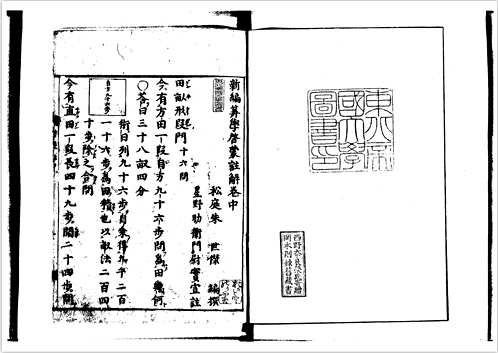 東北帝
國大學
圖書印
岡本則録舊藏書
新編算學啓蒙註解卷中
松庭朱 世傑 編撰
星野助衛門尉實宣註
田畝形段門 十六問
今有方田一段自方九十六步問爲田幾何
○荅曰三十八畝四分
術曰列九十六步自乘得九千二百
一十六步爲田積也以畝法二百四
十步除之合問
今有直田一段長四十九步闊二十四步問